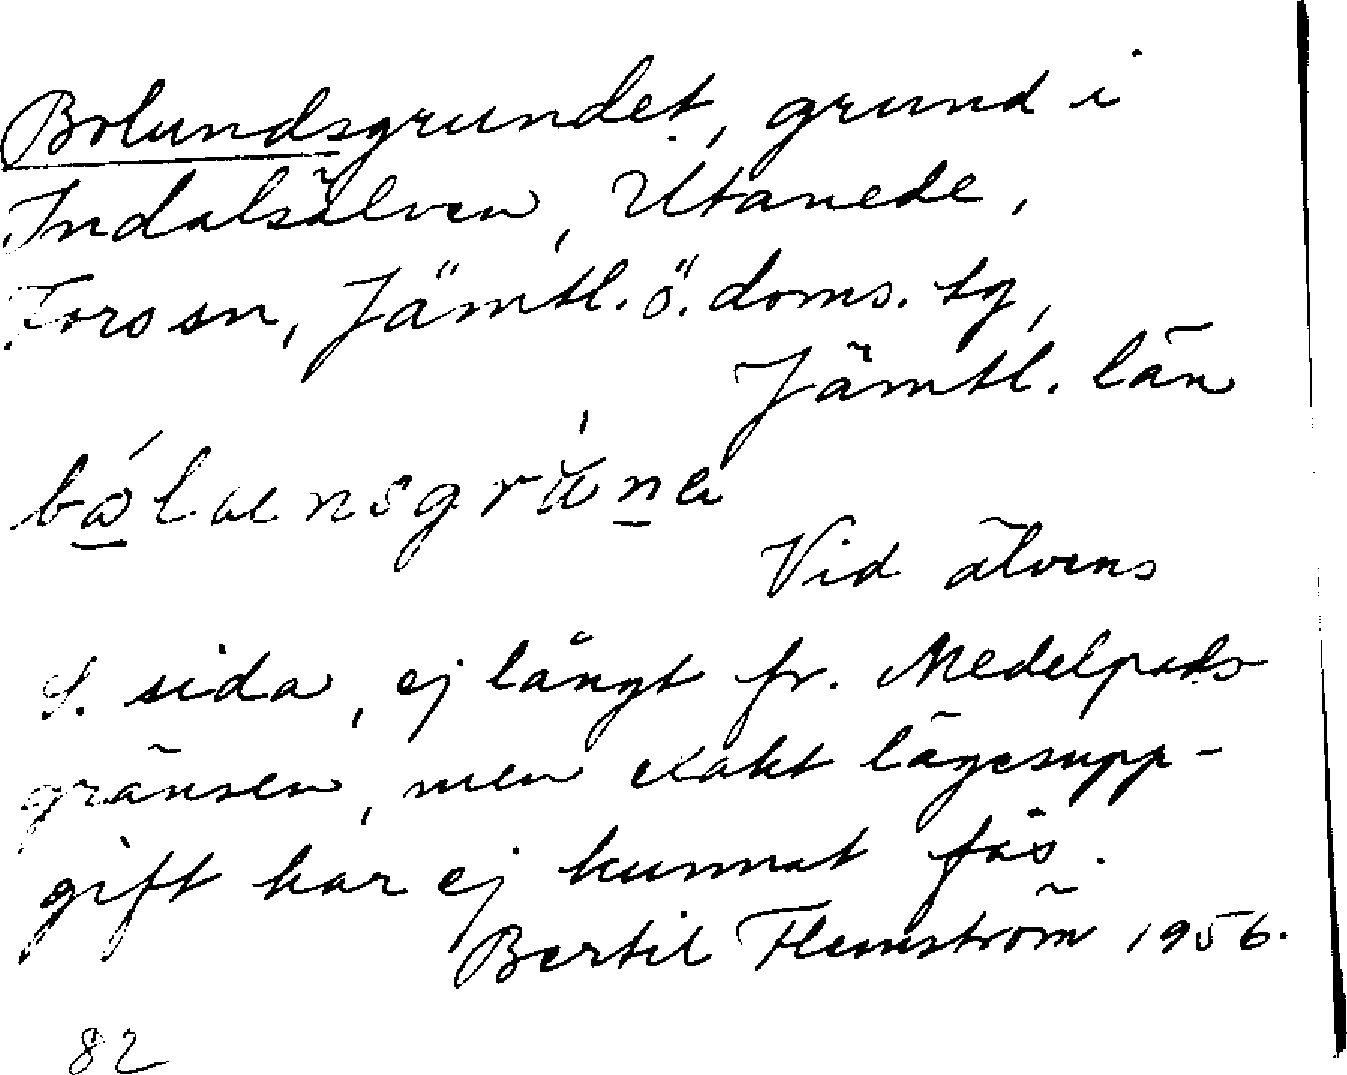 Bolundsgrundet, grund i
Indalsälven, Utanede,
Fors sn, Jämtl. ö. doms. tg,
Jämtl. län
Vid älvens
S. sida, ej långt fr. Medelpads-
gränsen, men exakt lägesupp-
gift har ej kunnat fås.
Bertil Flemström 1956.
82